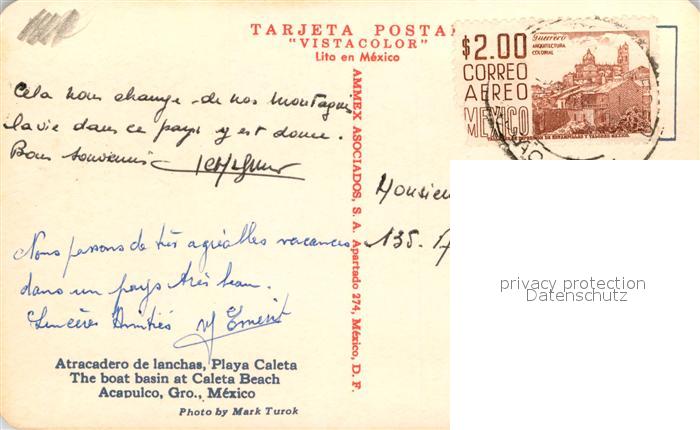 TARJETA POSTA
"VISTACOLOR"
Lito en México
$2.00
CORREO
AEREO
MEXICO
Guerrero
ARQUITECTURA
COLONIAL
Cela nous change de nos montagnes
la vie dans ce pays y est douce.
Bons souvenirs
Nous passons de très agréables vacances
dans un pays très beau.
Sincères Amitiés
AMMEX ASOCIADOS, S. A. Apartado 274, México, D. F.
Monsieu
135.
privacy protection
Datenschutz
Atracadero de lanchas, Playa Caleta
The boat basin at Caleta Beach
Acapulco, Gro., México
Photo by Mark Turok